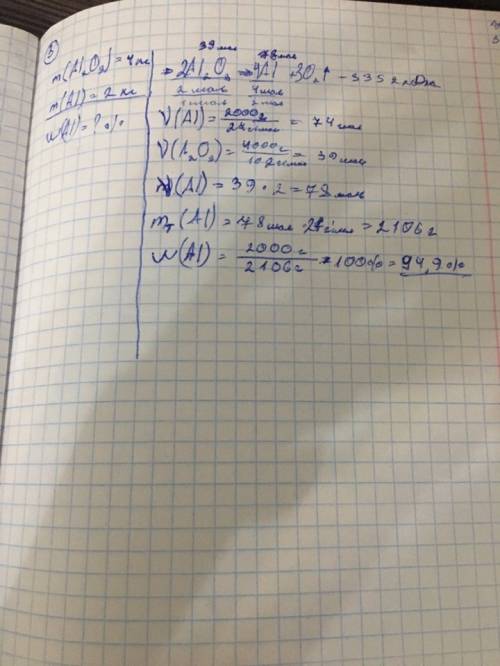 5
m(Al₂O₃) = 4 кг
m(Al) = 2 кг
w(Al) = ? %
39 моль 78 моль
2Al₂O₃ = 4Al + 3O₂↑ - 3352 кДж
2 моль 4 моль
1 моль 2 моль
ν(Al) = 2000г / 27 г/моль = 74 моль
ν(Al₂O₃) = 4000г / 102 г/моль = 39 моль
ν(Al) = 39 · 2 = 78 моль
mт(Al) = 78 моль · 27 г/моль = 2106 г
w(Al) = 2000г / 2106г · 100% = 94,9%